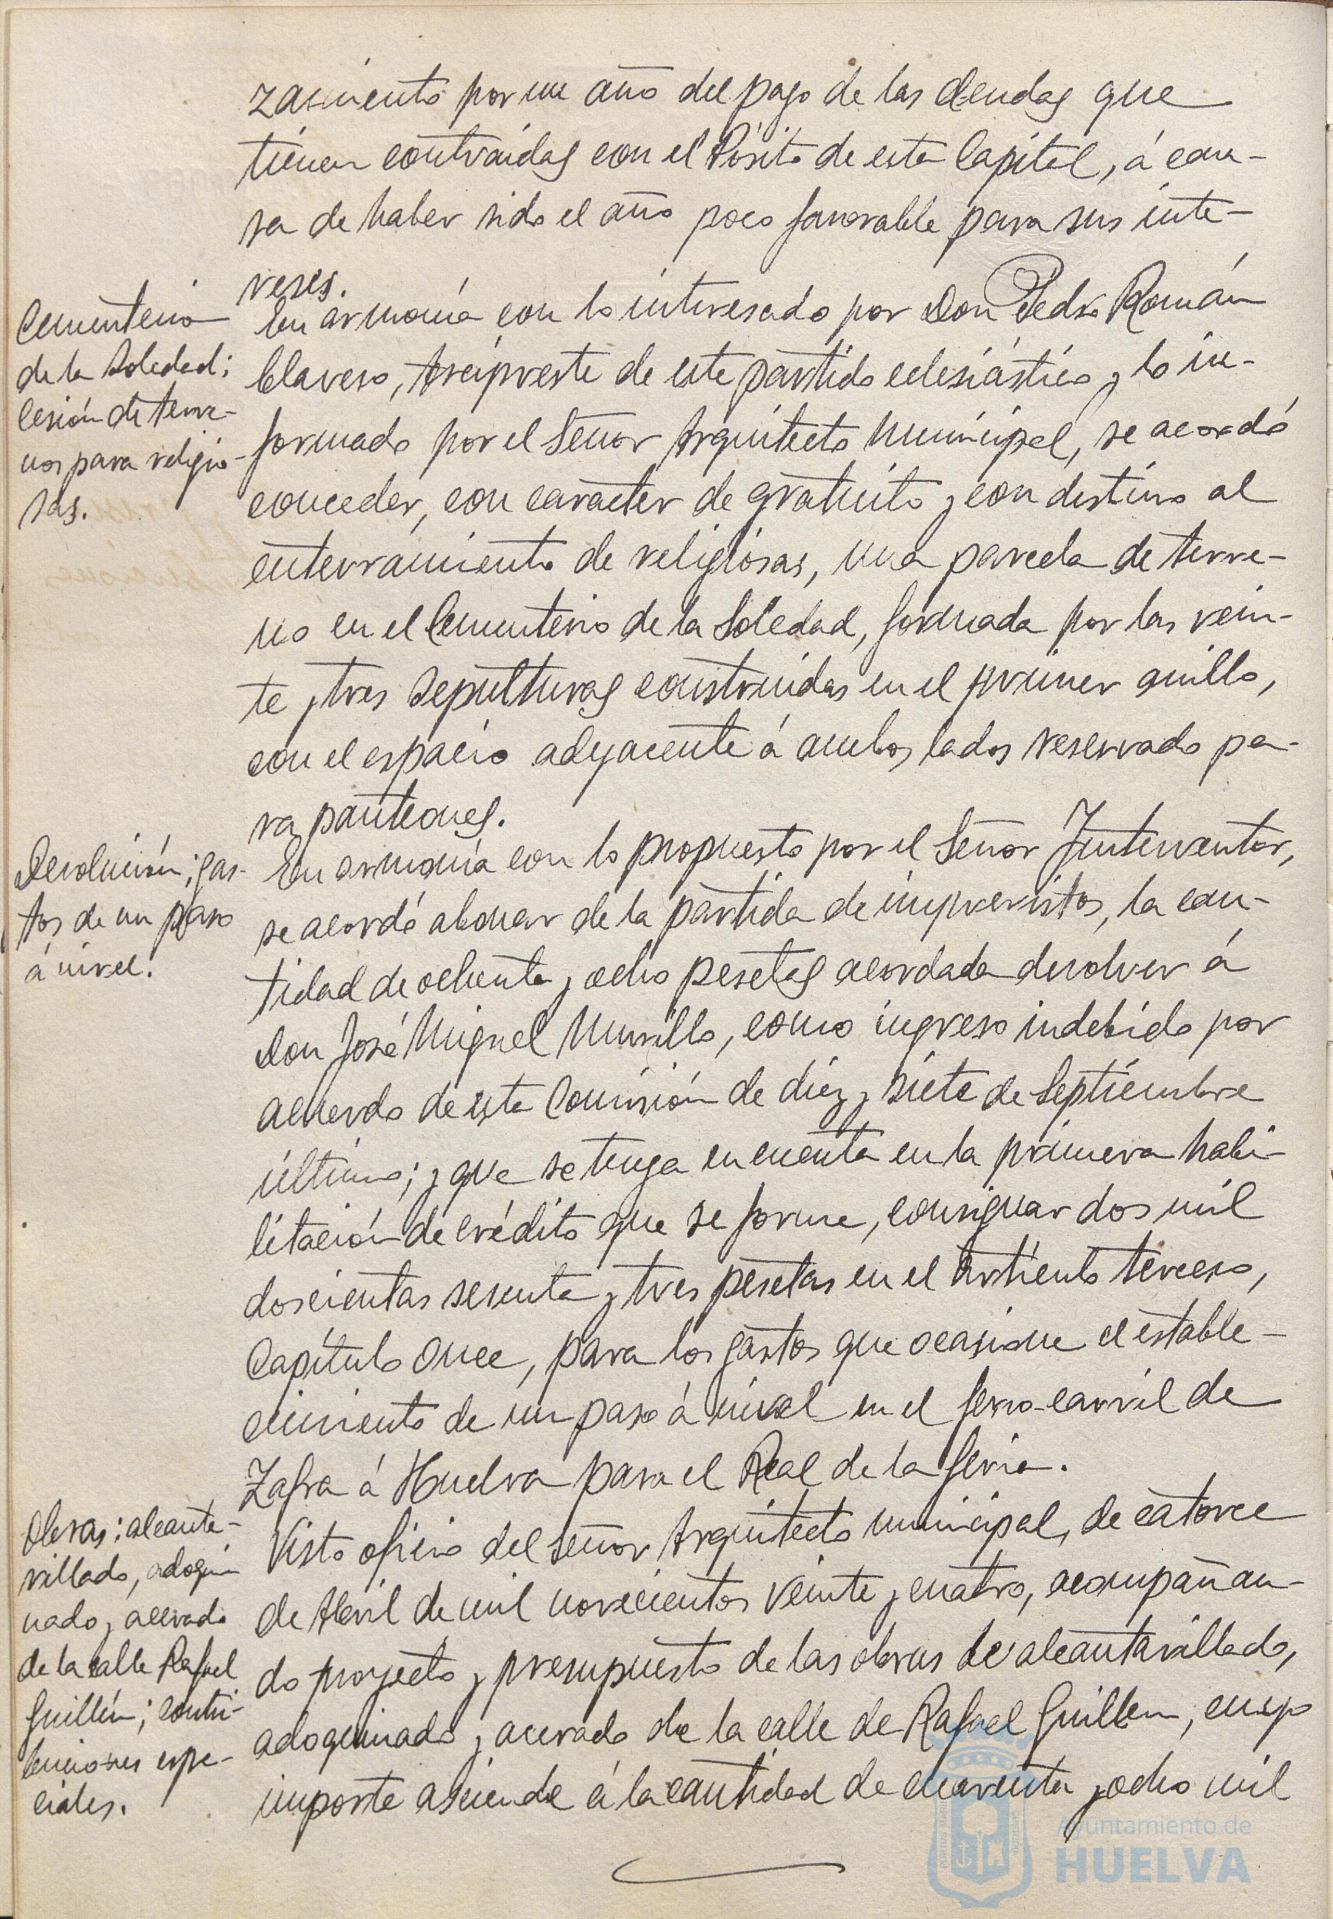 zamiento por un año del pago de las deudas que
tienen contraidas con el Pósito de esta Capital, á cau-
sa de haber sido el año poco favorable para sus inte-
reses.
Cementerio
de la Soledad;
cesión de terre-
nos para religio-
sas.
En armonía con lo interesado por Don Pedro Román
Clavero, Arcipreste de este partido eclesiástico y lo in-
formado por el Señor Arquitecto Municipal, se acordó
conceder, con carácter de gratuito y con destino al
enterramiento de religiosas, una parcela de terre-
no en el Cementerio de la Soledad, formada por las vein-
te y tres sepulturas construidas en el primer anillo,
con el espacio adyacente á ambos lados reservado pa-
ra panteones.
Devolución; gas-
tos de un paso
á nivel.
En armonía con lo propuesto por el Señor Interventor,
se acordó abonar de la partida de imprevistos, la can-
tidad de ochenta y ocho pesetas acordada devolver á
Don José Miguel Murillo, como ingreso indebido por
acuerdo de esta Comisión de diez y siete de Septiembre
último; y que se tenga en cuenta en la primera habi-
litación de crédito que se forme, consignar dos mil
doscientas sesenta y tres pesetas en el Artículo tercero,
Capítulo Once, para los gastos que ocasione el estable-
cimiento de un paso á nivel en el ferro-carril de
Zafra á Huelva para el Real de la feria.
Obras; alcanta-
rillado, adoqui
nado y acerado
de la calle Rafael
Guillén; contri-
buciones espe-
ciales.
Visto oficio del Señor Arquitecto municipal, de catorce
de Abril de mil novecientos veinte y cuatro, acompañan-
do proyecto y presupuesto de las obras de alcantarillado,
adoquinado y acerado de la calle de Rafael Guillen, cuyo
importe asciende á la cantidad de cuarenta y ocho mil
Ayuntamiento de
HUELVA